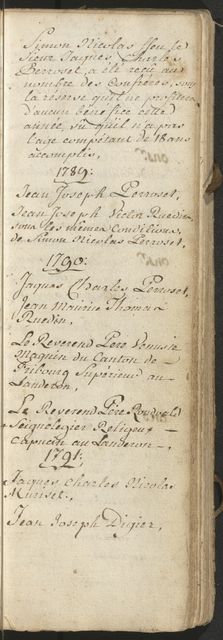 Simon Nicolas ffeu le
Sieur Jaques Charles
Perroset, a été reçu au
nombre des Confréres, sous
la réserve qu'il ne profitera
d'aucun bénéfice cette
année, vû qu'il n'a pas
l'age compétant de 18 ans
accomplis,
1789:
Jean Joseph Perroset,
Jean Joseph Victor Ruedin
sous les mêmes Conditions,
de Simon Nicolas Perroset,
1790:
Jaques Charles Perroset,
Jean Maurice Thomas
Ruedin,
Le Reverend Père
Maquin du Canton de
Fribourg Supérieur au
Landeron,
Le Reverend Père
Religeux
Capucin au Landeron,
1791:
Jaques Charles Nicolas
Muriset,
Jean Joseph Digier,